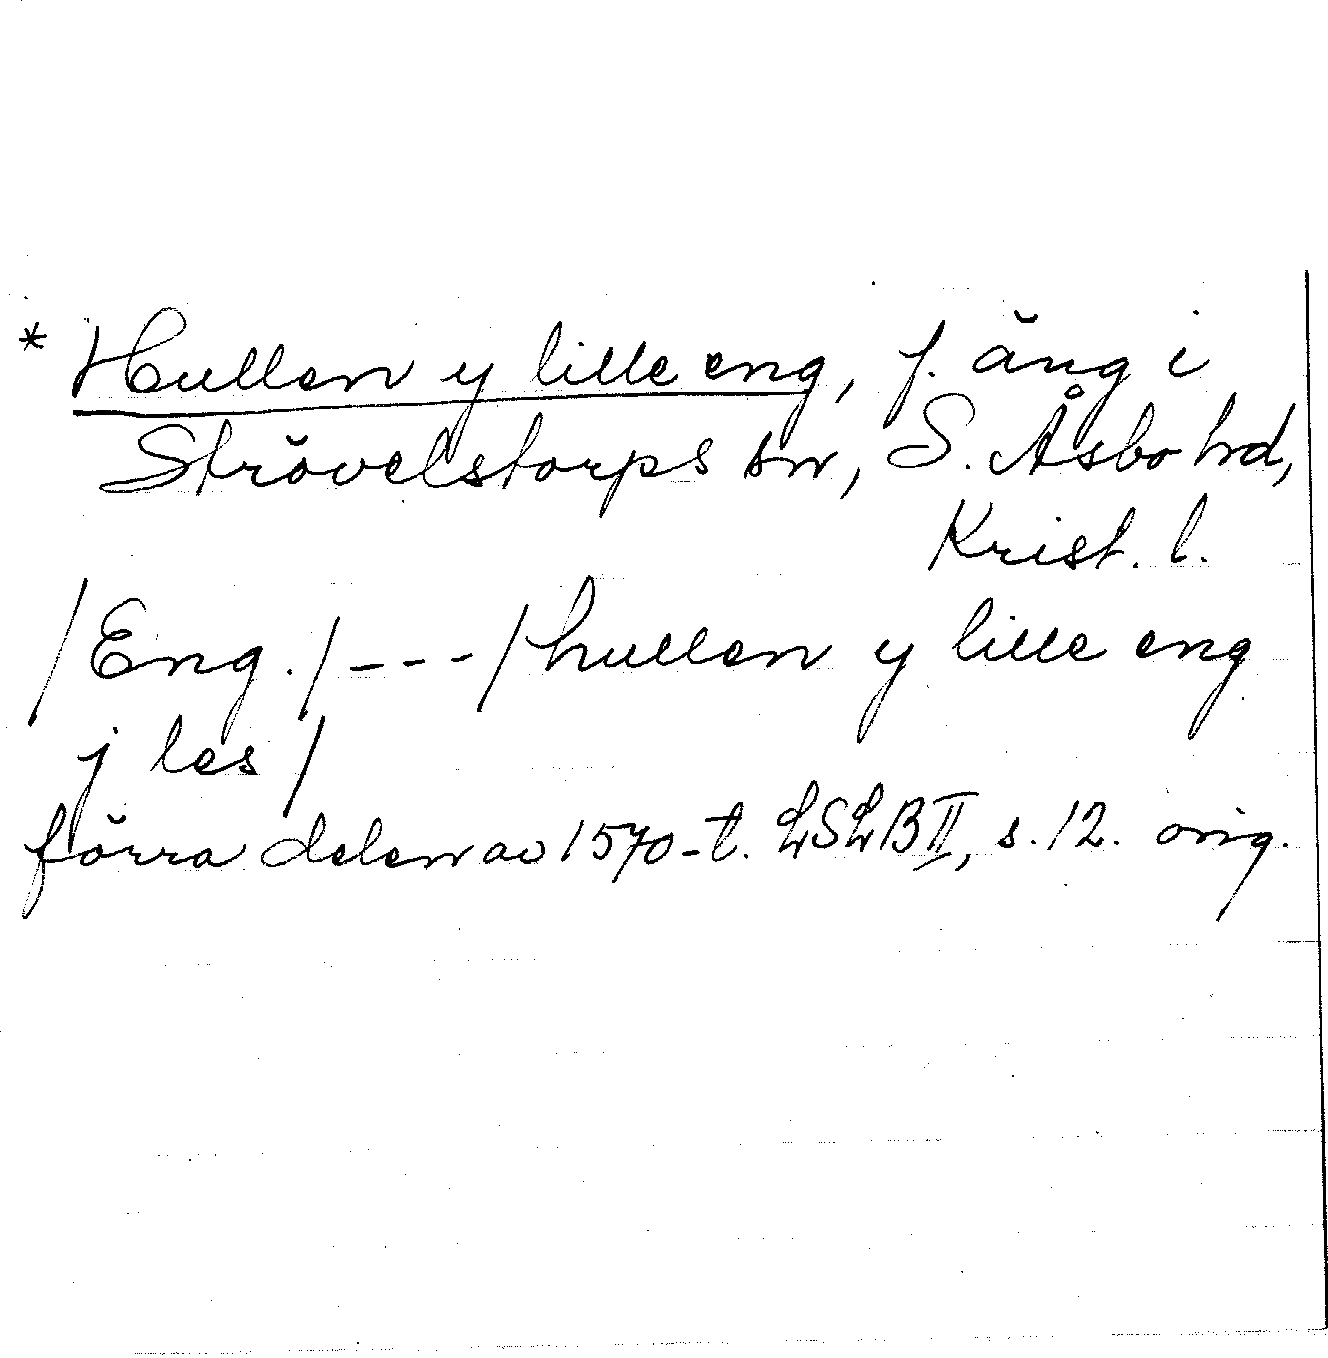 * Hullen y lille eng, f. äng i
Strövelstorps sn, S. Åsbo hd,
Krist. l.
/Eng./---/hullen y lille eng
j les/
förra delen av 1570-t. LSLB II, s. 12. orig.